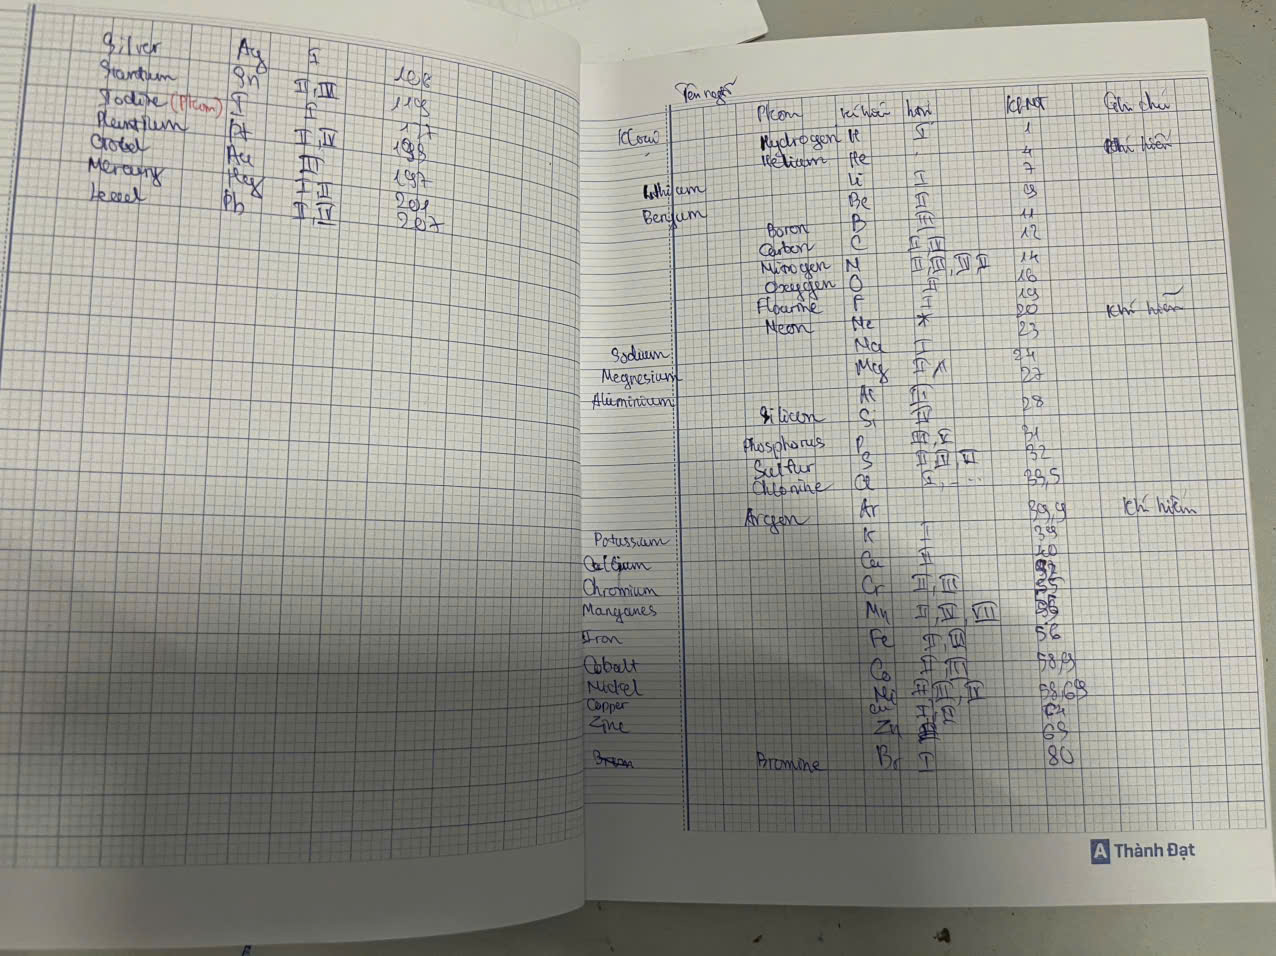 Silver Ag I 108
Sn II, IV 119
Iodine (Pkim) I I 127
Pt II, IV 195
Au III 197
Mercury Hg I II 201
Pb II IV 207
Pkim hiệu
Hydrogen H I 1
Helium He 4 Khí hiếm
Lithium Li I 7
Be II 9
Boron B III 11
Carbon C II, IV 12
Nitrogen N II, III, IV 14
Oxygen O II 16
Flourine F I 19
Neon Ne * 20 Khí hiếm
Sodium Na I 23
Megnesium Mg II 24
Aluminium Al III 27
Silicon Si IV 28
Phosphorus P III, V 31
Sulfur S II IV, VI 32
Chlorine Cl I, ... 35,5
Argon Ar 39,9 Khí hiếm
Potussium K I 39
Ca II 40
Chromium Cr II, III
Manganes Mn II, IV, VII 55
Iron Fe II, III 56
Cobalt Co II III 58,9
Nickel Ni 58,69
Copper Cu 64
Zinc Zn 65
Bromine Br I 80
A Thành Đạt